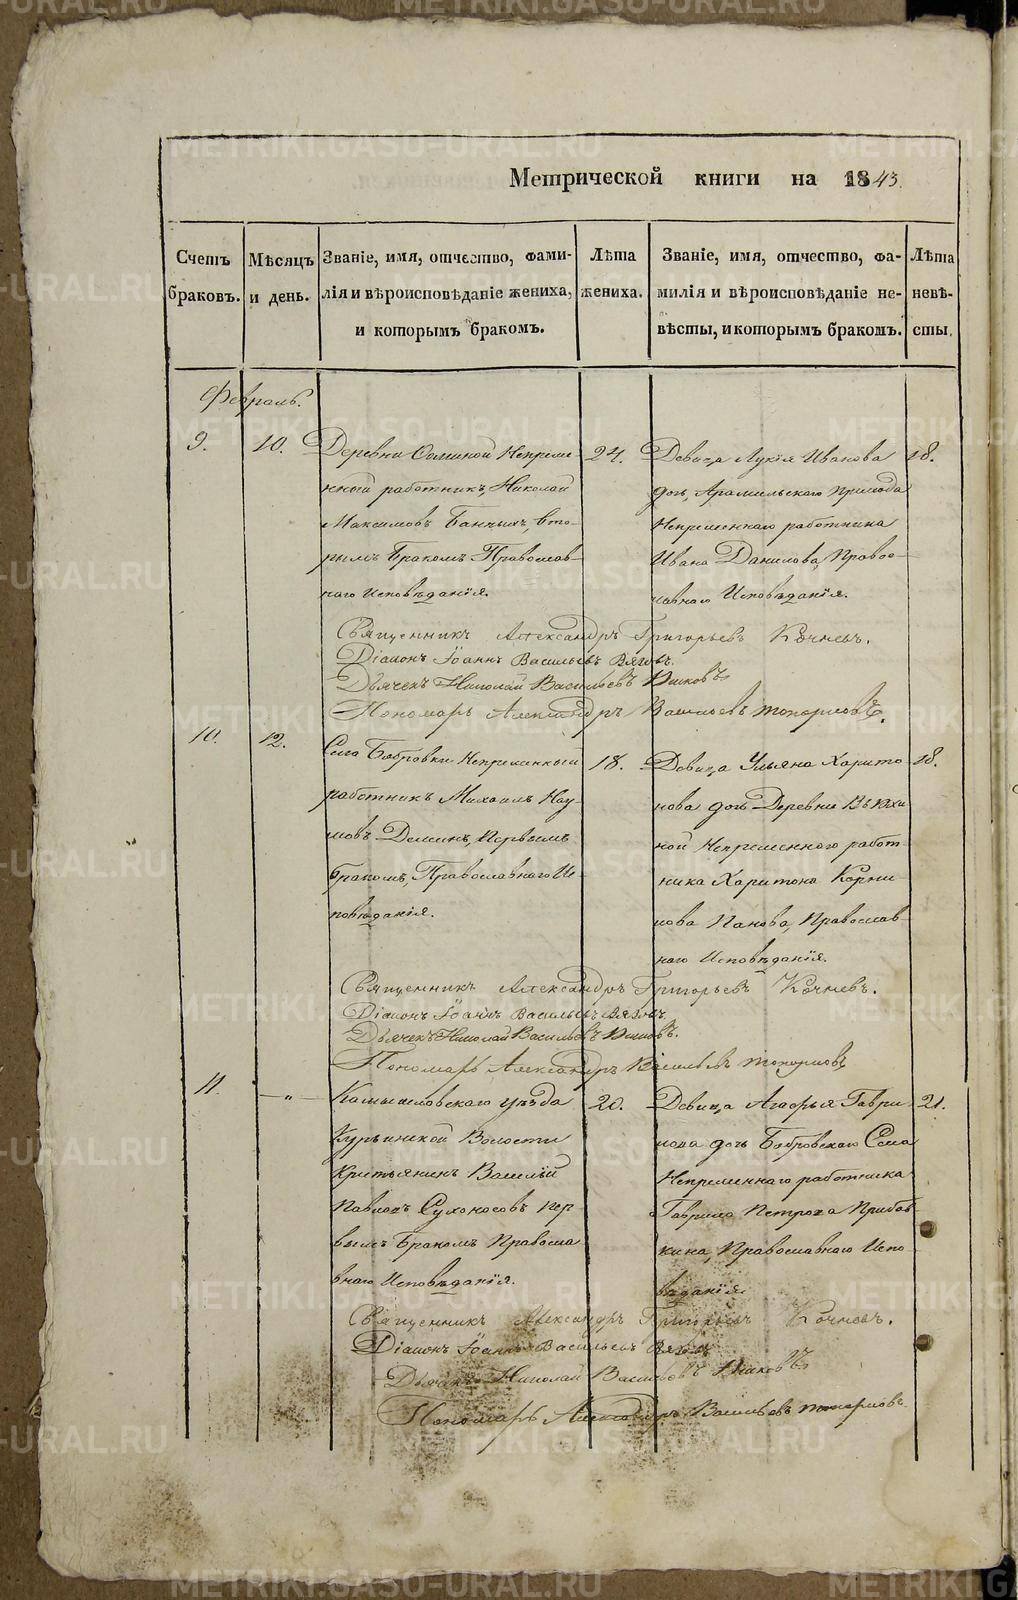 Метрической книги на 1843.
Счетъ браковъ.
Мѣсяцъ и день.
Званіе, имя, отчество, фами-
лія и вѣроисповѣданіе жениха,
и которымъ бракомъ.
Лѣта жениха.
Званіе, имя, отчество, фа-
милія и вѣроисповѣданіе не-
вѣсты, и которымъ бракомъ.
Лѣта невѣ-
сты.
Февраль.
9. 10.
Деревни Непреме
нный работникъ, Николай
Максимовъ вто-
рымъ бракомъ Православ-
наго Исповѣданія.
24.
Девица Лукія Иванова
дочь, Арамильскаго
Непременнаго работника
Ивана Данилова, Правос-
лавнаго Исповѣданія.
18.
Священникъ Александръ Григорьевъ Кочневъ.
Діаконъ Іоаннъ Васильевъ
Дьячекъ Николай Васильевъ
Пономарь Александръ Васильевъ Топорковъ.
10. 12.
Села Бобровки Непременный
работникъ Михаилъ Нау-
мовъ Деминъ, первымъ
бракомъ, Православнаго Ис-
повѣданія.
18.
Девица Ульяна Харито
нова дочь Деревни
ной Непременнаго работ-
ника Харитона Корни
лова Панова, Православ-
наго Исповѣданія.
18.
Священникъ Александръ Григорьевъ Кочневъ.
Діаконъ Іоаннъ Васильевъ
Дьячекъ Николай Васильевъ
Пономарь Александръ Васильевъ Топорковъ
11. — „ —
Камышловскаго уѣзда
Курьинской Волости
Крестьянинъ Василій
Павловъ Сухоносовъ пер
вымъ бракомъ Правосла
внаго Исповѣданія.
20.
Девица Агафья Гаври
лова дочь Бобровскаго Села
Непременнаго работника
Гаврила Петрова Прибыт
кина, Православнаго Испо
вѣданія
21.
Священникъ Александръ Григорьевъ Кочневъ.
Діаконъ Іоаннъ Васильевъ
Дьячекъ Николай Васильевъ
Пономарь Александръ Васильевъ Топорковъ.
METRIKI.GASO-URAL.RU